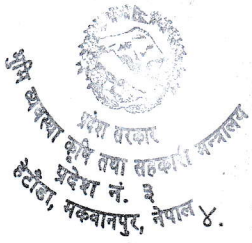 प्रदेश सरकार
भूमि व्यवस्था कृषि तथा सहकारी मन्त्रालय
प्रदेश नं. ३
हेटौंडा, मकवानपुर, नेपाल ४.